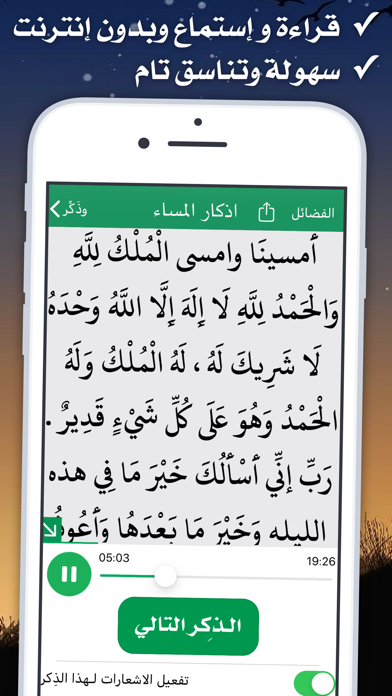 ✓ قراءة و إستماع وبدون إنترنت
✓ سهولة وتناسق تام
الفضائل
اذكار المساء
وذَكِّر
أمسينَا وامسى الْمُلْكُ لِلَّهِ
وَالْحَمْدُ لِلَّهِ لَا إِلَهَ إِلَّا اللَّهُ وَحْدَهُ
لَا شَرِيكَ لَهُ ، لَهُ الْمُلْكُ وَلَهُ
الْحَمْدُ وَهُوَ عَلَى كُلِّ شَيْءٍ قَدِيرٌ .
رَبِّ إِنِّي أَسْأَلُكَ خَيْرَ مَا فِي هذه
الليله وَخَيْرَ مَا بَعْدَهَا وَأَعُوذُ
05:03
19:26
الـذِكر التالي
تفعيل الاشعارات لـهذا الذِكر